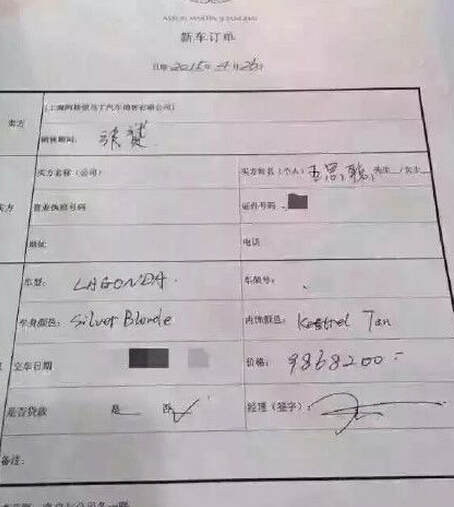 ASTON MARTIN SHANGHAI
新车订单
日期 2015年 4月26日
卖方
(上海阿斯顿马丁汽车销售有限公司)
销售顾问:
买方
买方名称(公司)
买方姓名(个人) 王思聪 先生__/女士__
营业执照号码
证件号码
地址
电话
车型: LAGONDA
车架号:
车身颜色: Silver Blonde
内饰颜色: Kestrel Tan
交车日期
价格: 9868200
是否贷款
是__ 否✓
经理(签字):
备注: